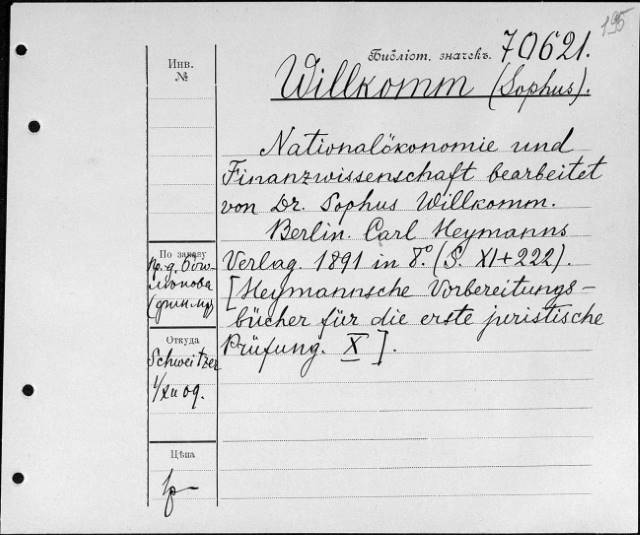 195
Библіот. значекъ. 70621.
Инв.
№
Willkomm (Sophus).
Nationalökonomie und
Finanzwissenschaft bearbeitet
von Dr. Sophus Willkomm.
Berlin. Carl Heymanns
Verlag. 1891 in 8.° (S. XI+222).
[Heymannsche Vorbereitungs-
bücher für die erste juristische
Prüfung. X].
По заказу
Откуда
Schweitzer
1/XII 09.
Цѣна